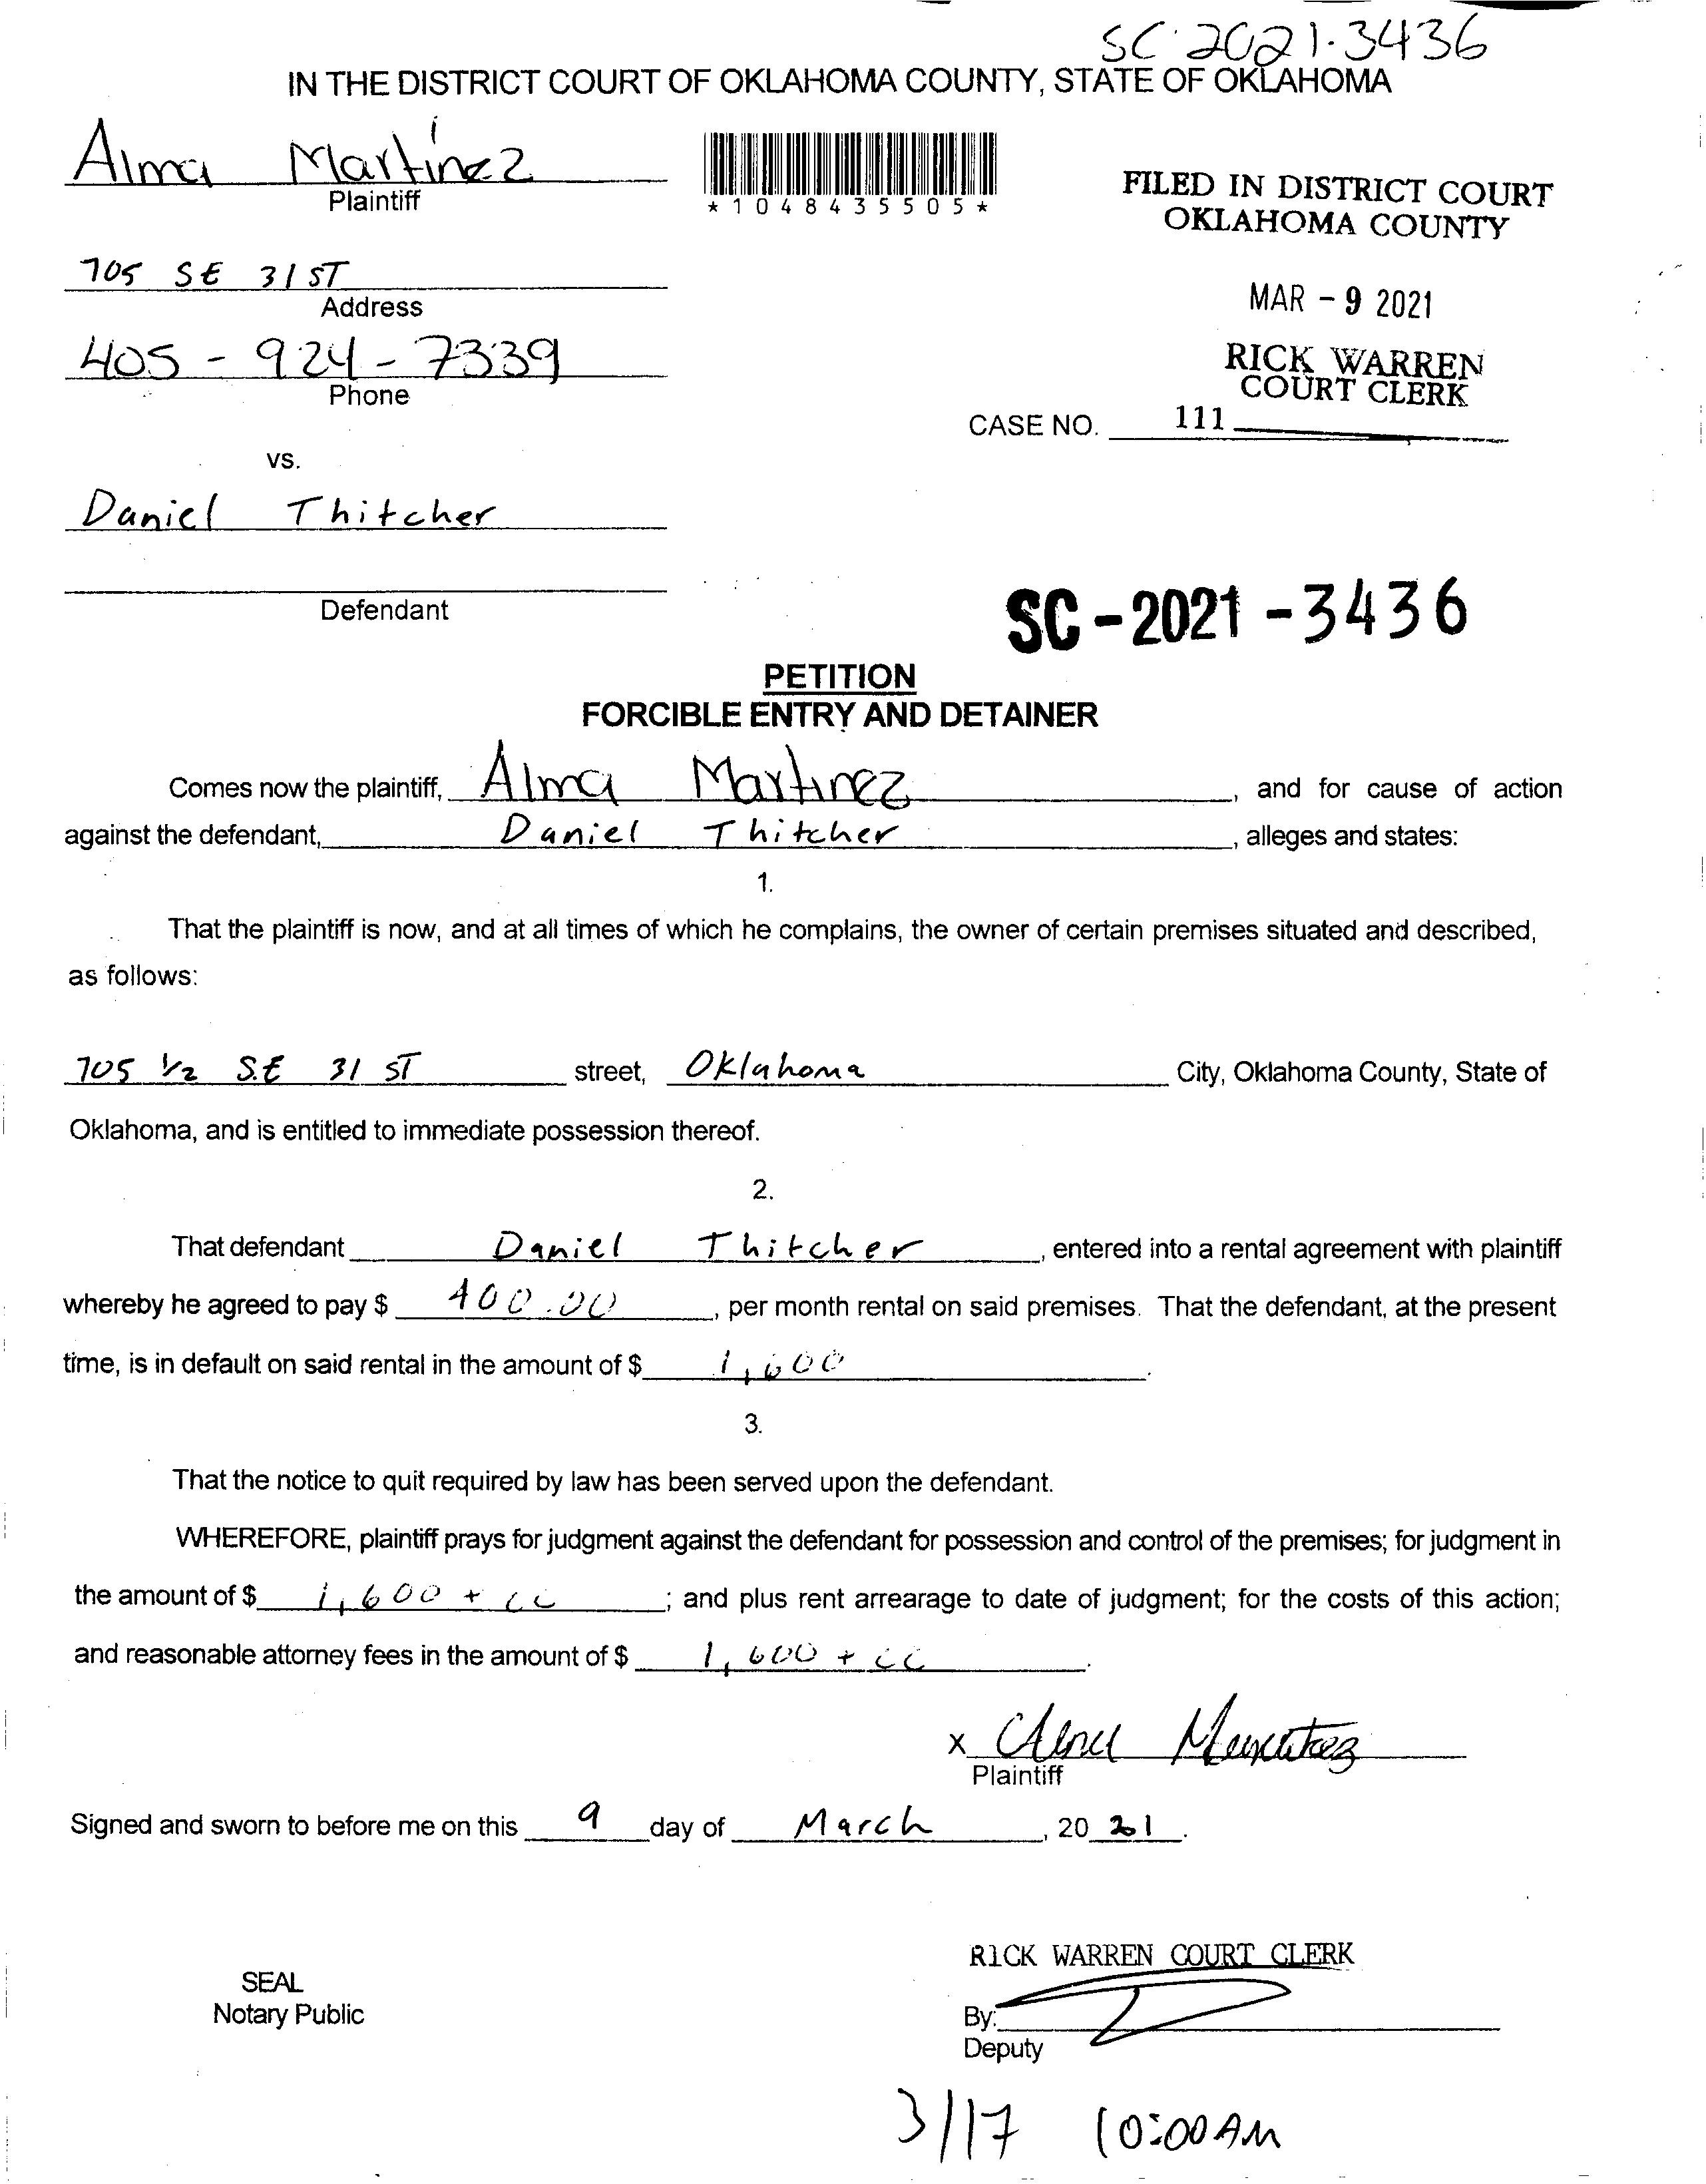 SC-2021-3436
IN THE DISTRICT COURT OF OKLAHOMA COUNTY, STATE OF OKLAHOMA
Alma Martinez
Plaintiff
*1048435505*
FILED IN DISTRICT COURT
OKLAHOMA COUNTY
705 SE 31 ST
Address
MAR - 9 2021
405-924-7339
Phone
RICK WARREN
COURT CLERK
CASE NO. 111
vs.
Daniel Thitcher
Defendant
SC-2021-3436
PETITION
FORCIBLE ENTRY AND DETAINER
Comes now the plaintiff, Alma Martinez, and for cause of action
against the defendant, Daniel Thitcher, alleges and states:
1.
That the plaintiff is now, and at all times of which he complains, the owner of certain premises situated and described,
as follows:
705 1/2 S.E 31 ST street, Oklahoma City, Oklahoma County, State of
Oklahoma, and is entitled to immediate possession thereof.
2.
That defendant Daniel Thitcher, entered into a rental agreement with plaintiff
whereby he agreed to pay $ 400.00, per month rental on said premises. That the defendant, at the present
time, is in default on said rental in the amount of $ 1,600.
3.
That the notice to quit required by law has been served upon the defendant.
WHEREFORE, plaintiff prays for judgment against the defendant for possession and control of the premises; for judgment in
the amount of $ 1,600 + cc; and plus rent arrearage to date of judgment; for the costs of this action;
and reasonable attorney fees in the amount of $ 1,600 + cc.
x Alma Martinez
Plaintiff
Signed and sworn to before me on this 9 day of March, 20 21.
RICK WARREN COURT CLERK
SEAL
Notary Public
By:
Deputy
3/17 10:00 AM